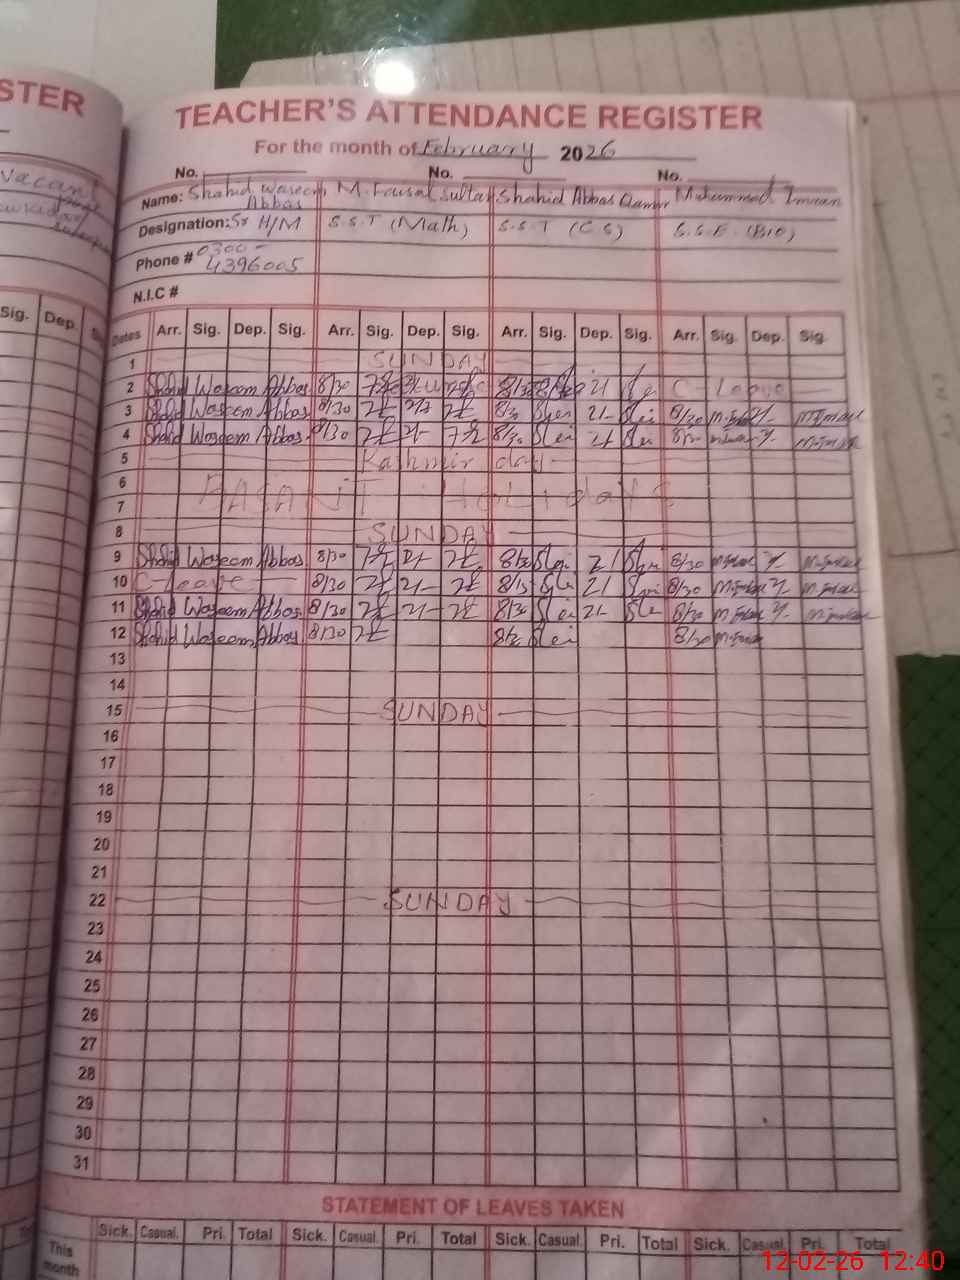 STER
TEACHER'S ATTENDANCE REGISTER
For the month of February 2026
No. No. No.
Vacant
Name: Shahid Waseem Abbas M. Faisal Sultan Shahid Abbas Qamar Muhammad Imran
Designation: Sr H/M S.S.T (Math) S.S.T (CS) S.S.E. (BIO)
Phone # 0300-
4396005
N.I.C #
Sig. Dep. S
Dates Arr. Sig. Dep. Sig. Arr. Sig. Dep. Sig. Arr. Sig. Dep. Sig. Arr. Sig. Dep. Sig.
1 SUNDAY
2 Shahid Waseem Abbas 8/30 8/30 21 C-Leave
3 Shahid Waseem Abbas 8/30 8/30 21- 8/30 M-Imran
4 Shahid Waseem Abbas 8/30 21- 8/30 21- M-Imran
5 Kashmir day
6 BASANT Holidays
7
8 SUNDAY
9 Shahid Waseem Abbas 8/30 21- 8/30 21 8/30 M-Imran
10 C-leave 8/30 21- 8/15 21 8/30 M-Imran
11 Shahid Waseem Abbas 8/30 21- 8/30 21- 8/30 M-Imran
12 Shahid Waseem Abbas 8/30 8/30 8/30 M-Imran
13
14
15 SUNDAY
16
17
18
19
20
21
22 SUNDAY
23
24
25
26
27
28
29
30
31
STATEMENT OF LEAVES TAKEN
Sick. Casual. Pri. Total Sick. Casual. Pri. Total Sick. Casual. Pri. Total Sick. Casual. Pri. Total
This
month
12-02-26 12:40